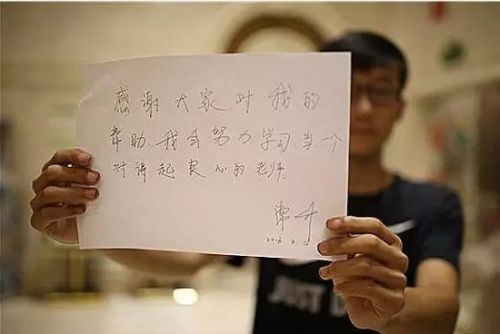 感谢大家对我的
帮助、我会努力学习、当一个
对得起良心的老师.
JUST D